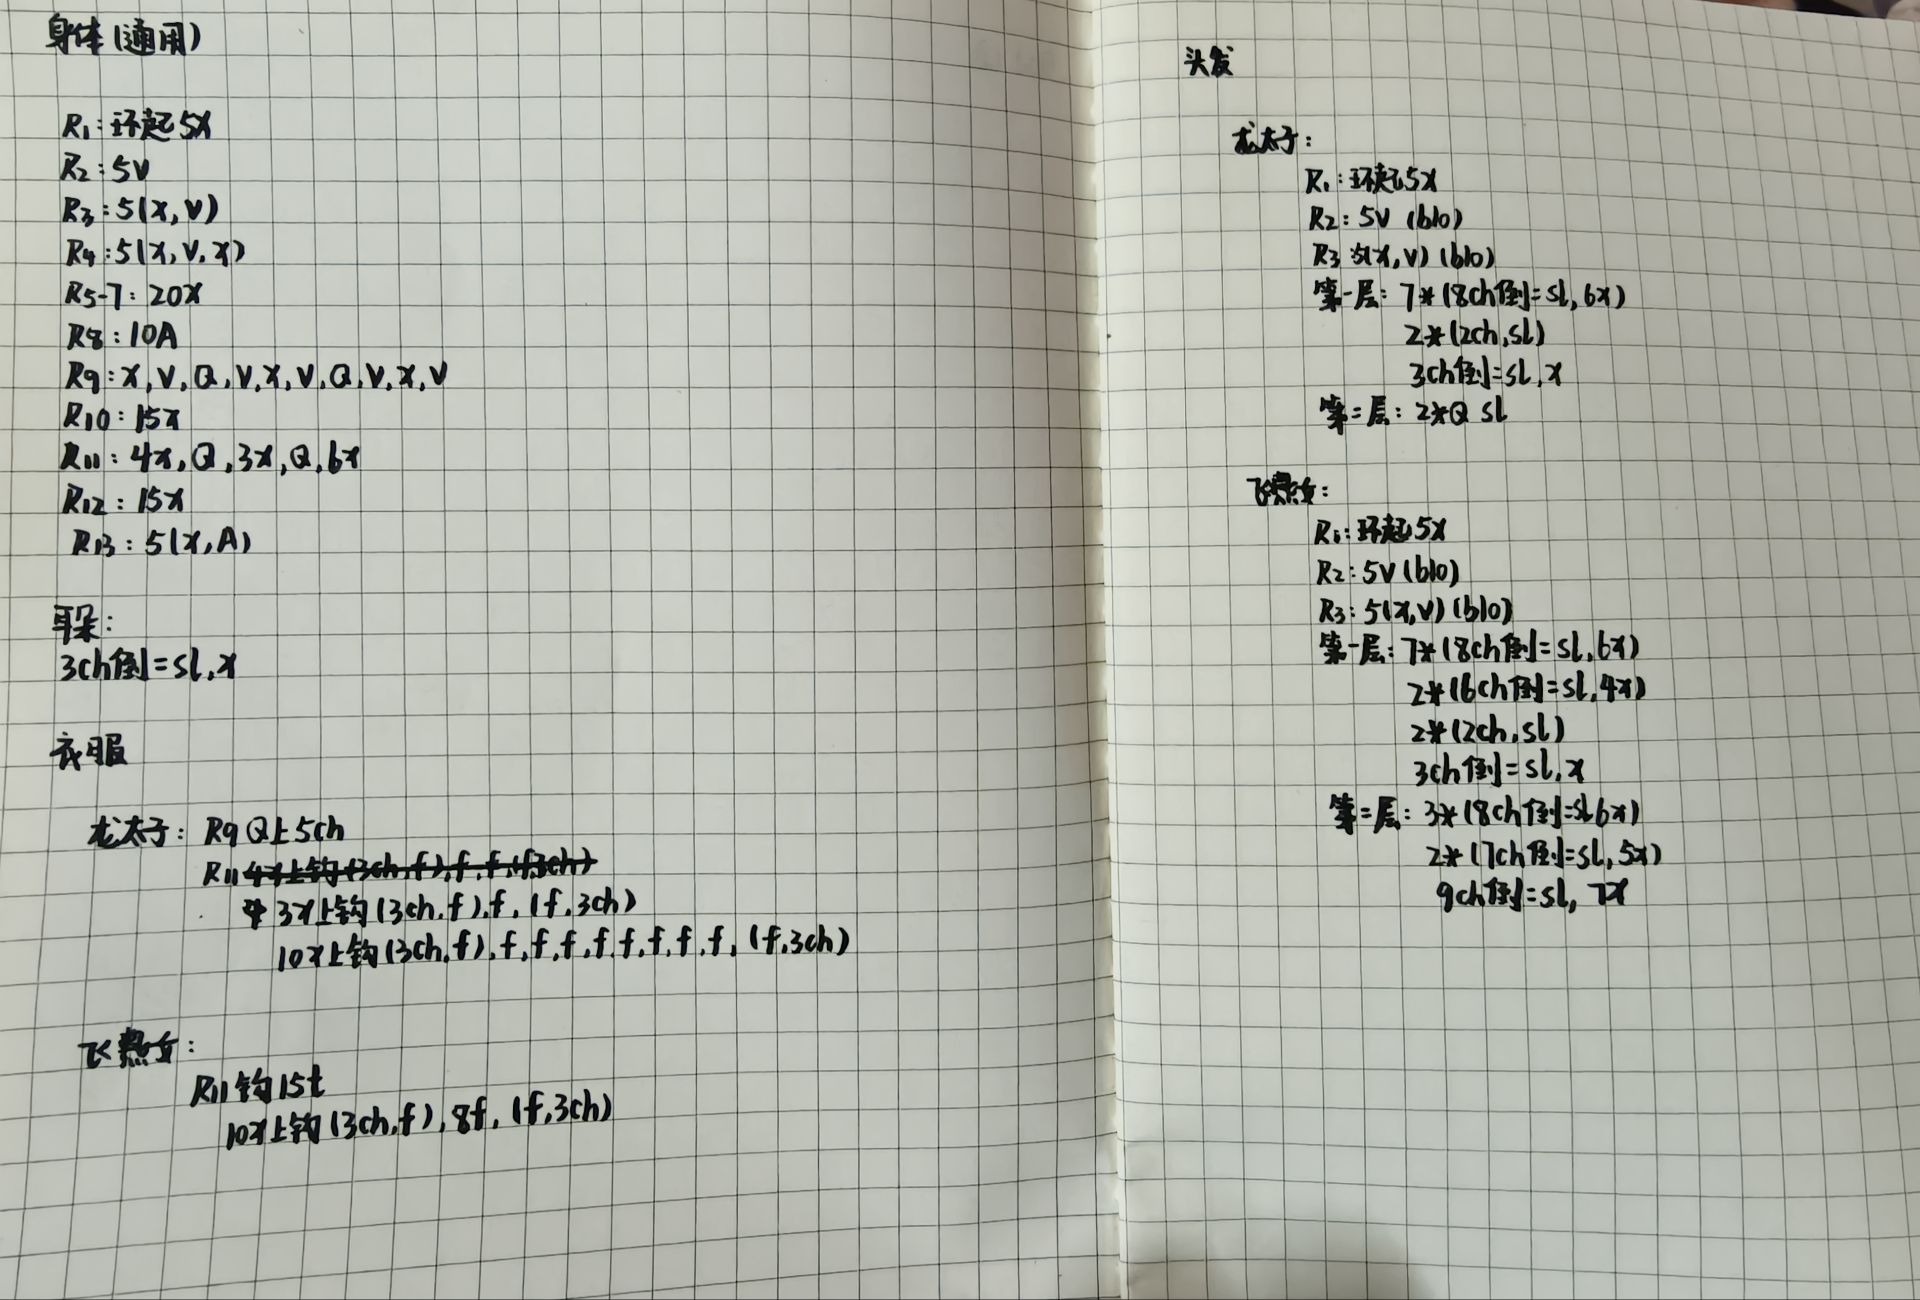 身体(通用)
R1:环起5x
R2:5V
R3:5(x,V)
R4:5(x,V,x)
R5-7:20x
R8:10A
R9:x,V,Q,V,x,V,Q,V,x,V
R10:15x
R11:4x,Q,3x,Q,6x
R12:15x
R13:5(x,A)
耳朵:
3ch倒=sl,x
衣服
龙太子:R9 Q上5ch
R11 4x上钩(3ch,f),f,f,(f,3ch)
3x上钩(3ch,f),f,(f,3ch)
10x上钩(3ch,f),f,f,f,f,f,f,f,f,(f,3ch)
飞燕女:
R11钩15t
10x上钩(3ch,f),8f,(f,3ch)
头发
龙太子:
R1:环起5x
R2:5V (blo)
R3:5(x,V)(blo)
第一层:7*(8ch倒=sl,6x)
2*(2ch,sl)
3ch倒=sl,x
第二层:2*Q sl
飞燕女:
R1:环起5x
R2:5V(blo)
R3:5(x,V)(blo)
第一层:7*(8ch倒=sl,6x)
2*(6ch倒=sl,4x)
2*(2ch,sl)
3ch倒=sl,x
第二层:3*(8ch倒=sl6x)
2*(7ch倒=sl,5x)
9ch倒=sl,7x